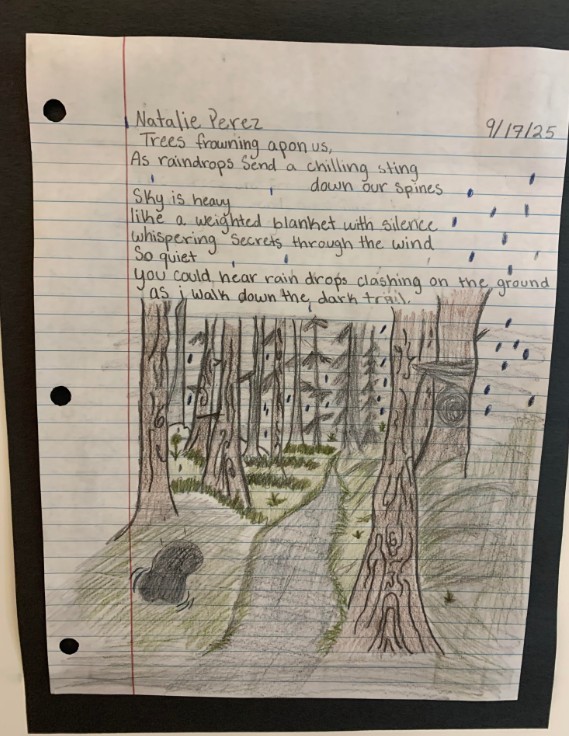 Natalie Perez 9/17/25
Trees frowning apon us,
As raindrops send a chilling sting
down our spines
Sky is heavy
like a weighted blanket with silence
whispering secrets through the wind
So quiet
you could hear rain drops clashing on the ground
as i walk down the dark trail.